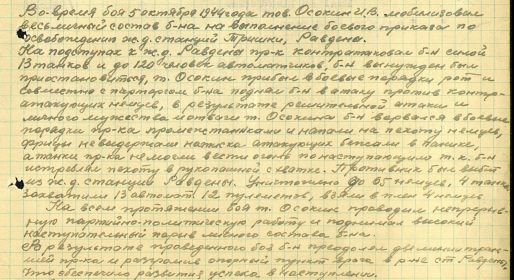 Во время боя 5 октября 1944 года тов. Осокин И.В. мобилизовал
весь личный состав б-на на выполнение боевого приказа по
освобождению ж.д. станций Тришки, Равдены.
На подступах к ж.д. Равдена пр-к контратаковал б-н силой
13 танков и до 120 человек автоматчиков, б-н вынужден был
приостановиться, т. Осокин прибыл в боевые порядки рот и
совместно с парторгом б-на поднял б-н в атаку против контр-
атакующих немцев, в результате решительной атаки и
личного мужества и отваги т. Осокина б-н ворвался в боевые
порядки пр-ка промеж танками и напал на пехоту немцев,
фрицы не выдержали натиска атакующих бежали в панике,
а танки пр-ка не могли вести огонь по наступающим т.к. б-н
истреблял пехоту в рукопашной схватке. Противник был выбит
из ж.д. станции Равдены. Уничтожено до 65 немцев, 4 танка
захватили 13 автомат. 12 пулеметов, взяли в плен 4 немцев.
На всем протяжении боя т. Осокин проводил непрерыв-
ную партийно-политическую работу и поднимал высокий
наступательный порыв личного состава б-на.
В результате проведенного боя б-н преодолел две линии тран-
шей пр-ка и разгромил опорный пункт врага в р-не ст. Равдены,
что обеспечило развитие успеха в наступлении.